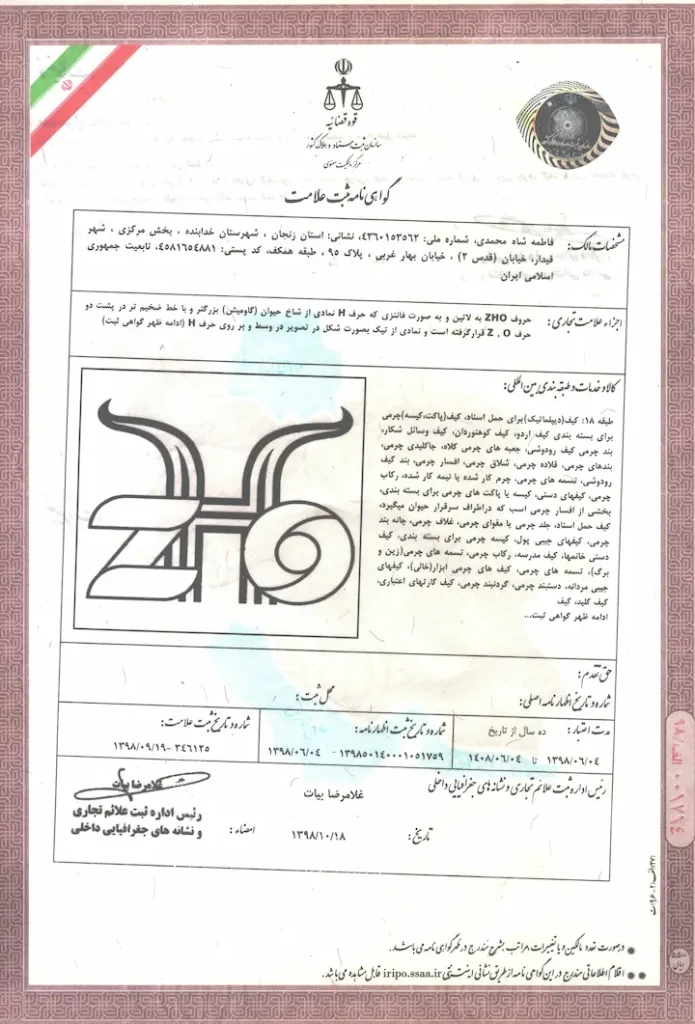 قوه قضائیه
سازمان ثبت اسناد و املاک کشور
مرکز مالکیت معنوی
گواهی نامه ثبت علامت
مشخصات مالک:
فاطمه شاه محمدی، شماره ملی: ۴۳۶۰۱۵۳۵۶۲، نشانی: استان زنجان ، شهرستان خدابنده ، بخش مرکزی ، شهر
قیدار، خیابان (قدس ۲) ، خیابان بهار غربی ، پلاک ۹۵ ، طبقه همکف، کد پستی: ۴۵۸۱۶۵۴۸۸۱، تابعیت جمهوری
اسلامی ایران
اجزاء علامت تجاری:
حروف ZHO به لاتین و به صورت فانتزی که حرف H نمادی از شاخ حیوان (گاومیش) بزرگتر و با خط ضخیم تر در پشت دو
حرف Z , O قرارگرفته است و نمادی از تیک بصورت شکل در تصویر در وسط و بر روی حرف H (ادامه ظهر گواهی ثبت)
کالا و خدمات و طبقه بندی بین المللی:
طبقه ۱۸: کیف(دیپلماتیک)برای حمل اسناد، کیف(پاکت،کیسه)چرمی
برای بسته بندی کیف اردو، کیف کوهنوردان، کیف وسائل شکار،
بند چرمی کیف رودوشی، جعبه های چرمی کلاه، جاکلیدی چرمی،
بندهای چرمی، قلاده چرمی، شلاق چرمی، افسار چرمی، بند کیف
رودوشی، تسمه های چرمی، چرم کار شده یا نیمه کار شده، رکاب
چرمی، کیفهای دستی، کیسه یا پاکت های چرمی برای بسته بندی،
بخشی از افسار چرمی اسب که دراطراف سرقرار حیوان میگیرد،
کیف حمل اسناد، جلد چرمی یا مقوای چرمی، غلاف چرمی، چانه بند
چرمی، کیفهای جیبی پول، کیسه چرمی برای بسته بندی، کیف
دستی خانمها، کیف مدرسه، رکاب چرمی، تسمه های چرمی(زین و
برگ)، تسمه های چرمی، کیف های چرمی ابزار(خالی)، کیفهای
جیبی مردانه، دستبند چرمی، گردنبند چرمی، کیف کارتهای اعتباری،
کیف کلید، کیف
ادامه ظهر گواهی ثبت...
ZHO
حق تقدم:
شماره و تاریخ اظهارنامه اصلی:
محل ثبت:
مدت اعتبار: ده سال از تاریخ
۱۳۹۸/۰۶/۰۴ تا ۱۴۰۸/۰۶/۰۴
شماره و تاریخ ثبت اظهارنامه:
۱۳۹۸۵۰۱۴۰۰۰۱۰۵۱۷۵۹ - ۱۳۹۸/۰۶/۰۴
شماره و تاریخ ثبت علامت:
۳۴۶۱۲۵ - ۱۳۹۸/۰۹/۱۹
رئیس اداره ثبت علائم تجاری و نشانه های جغرافیایی داخلی
غلامرضا بیات
تاریخ: ۱۳۹۸/۱۰/۱۸
امضاء:
غلامرضا بیات
رئیس اداره ثبت علائم تجاری
و نشانه های جغرافیایی داخلی
* درصورت تعدد مالکین و یا تغییرات، مراتب بشرح مندرج در ظهر گواهی نامه می باشد.
** اقلام اطلاعاتی مندرج در این گواهی نامه از طریق نشانی اینترنتی iripo.ssaa.ir قابل مشاهده می باشد.